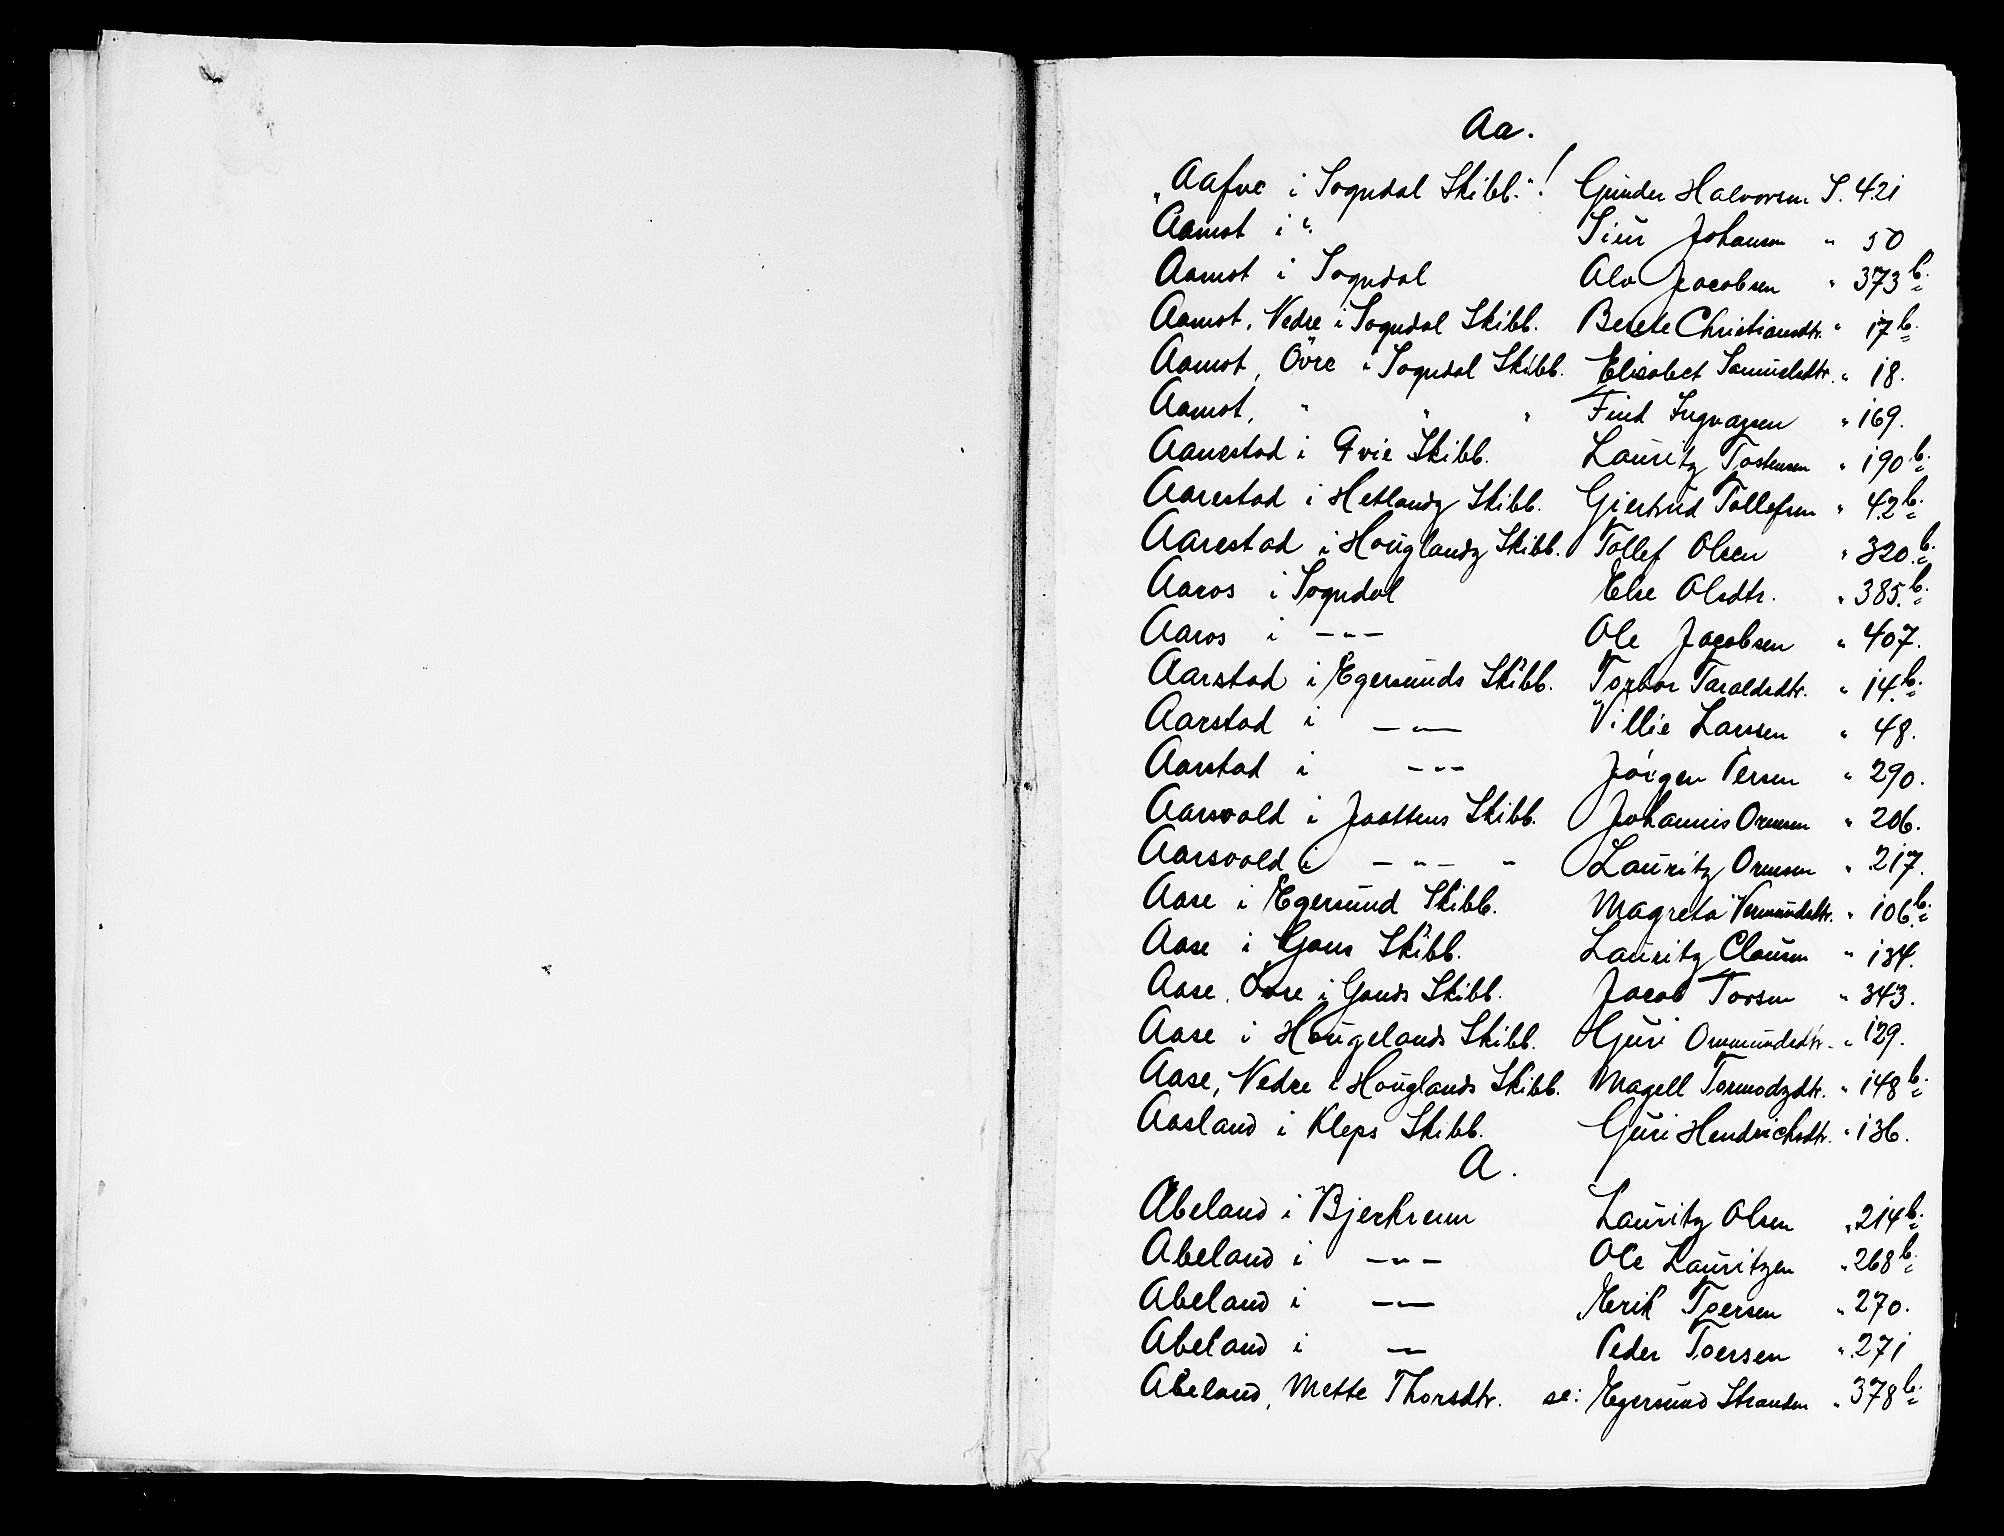 Aa.
"Aafve i Sogndal Skibb."! Gunder Halvorsen S. 421
Aamot i ". Siur Johansen " 50
Aamot i Sogndal Alv Jacobsen " 373 b.
Aamot, Nedre i Sogndal Skibb. Berete Christiansdtr. " 17 b.
Aamot, Övre i Sogndal Skibb. Elisabet Samuelsdtr. " 18.
Aamot, " " " Find Ingvagsen " 169.
Aanestad i Qvie Skibb. Lauritz Tostensen " 190 b.
Aarestad i Hetlandz Skibb. Giertrud Tollefsen " 42 b.
Aarestad i Houglandz Skibb. Tollef Olsen " 320. b.
Aaros i Sogndal Else Olsdtr. " 385. b.
Aaros i — " — Ole Jacobsen " 407.
Aarstad i Egersunds Skibb. Torbor Taraldsdtr. " 14. b.
Aarstad i — " — Villie Larsen " 48.
Aarstad i — " — Jörgen Persen " 290.
Aarsvold i Jaattens Skibb. Johannis Ormsen " 206.
Aarsvold i — " — " Lauritz Ormsen " 217.
Aase i Egersund Skibb. Magreta Vermundsdtr. " 106. b.
Aase i Gans Skibb. Lauritz Clausen " 134.
Aase, Övre i Gands Skibb. Jacob Torsen " 343.
Aase i Hougelands Skibb. Guri Ommundsdtr. " 129.
Aase, Nedre i Houglands Skibb. Magell Tormodzdtr. " 148 b.
Aasland i Kleps Skibb. Guri Hendrichsdtr. " 136.
A.
Abeland i Bjerkreim Lauritz Olsen " 214 b.
Abeland i — " — Ole Lauritzen " 268 b.
Abeland i — " — Erik Toersen " 270.
Abeland i — " — Peder Toersen " 271
Abeland, Mette Thorsdtr. se: Egersund Stranden " 378 b.